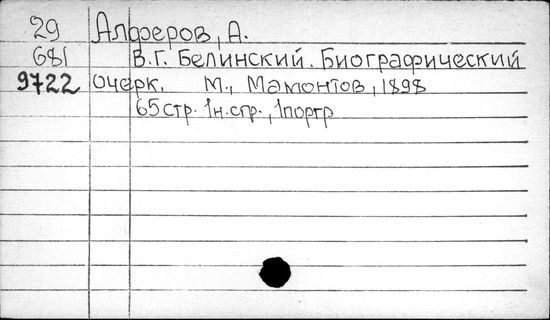 29 Алферов, А.
681 В.Г. Белинский. Биографический
9722 очерк. М., Мамонтов, 1898
65 стр. 1н.стр., 1портр